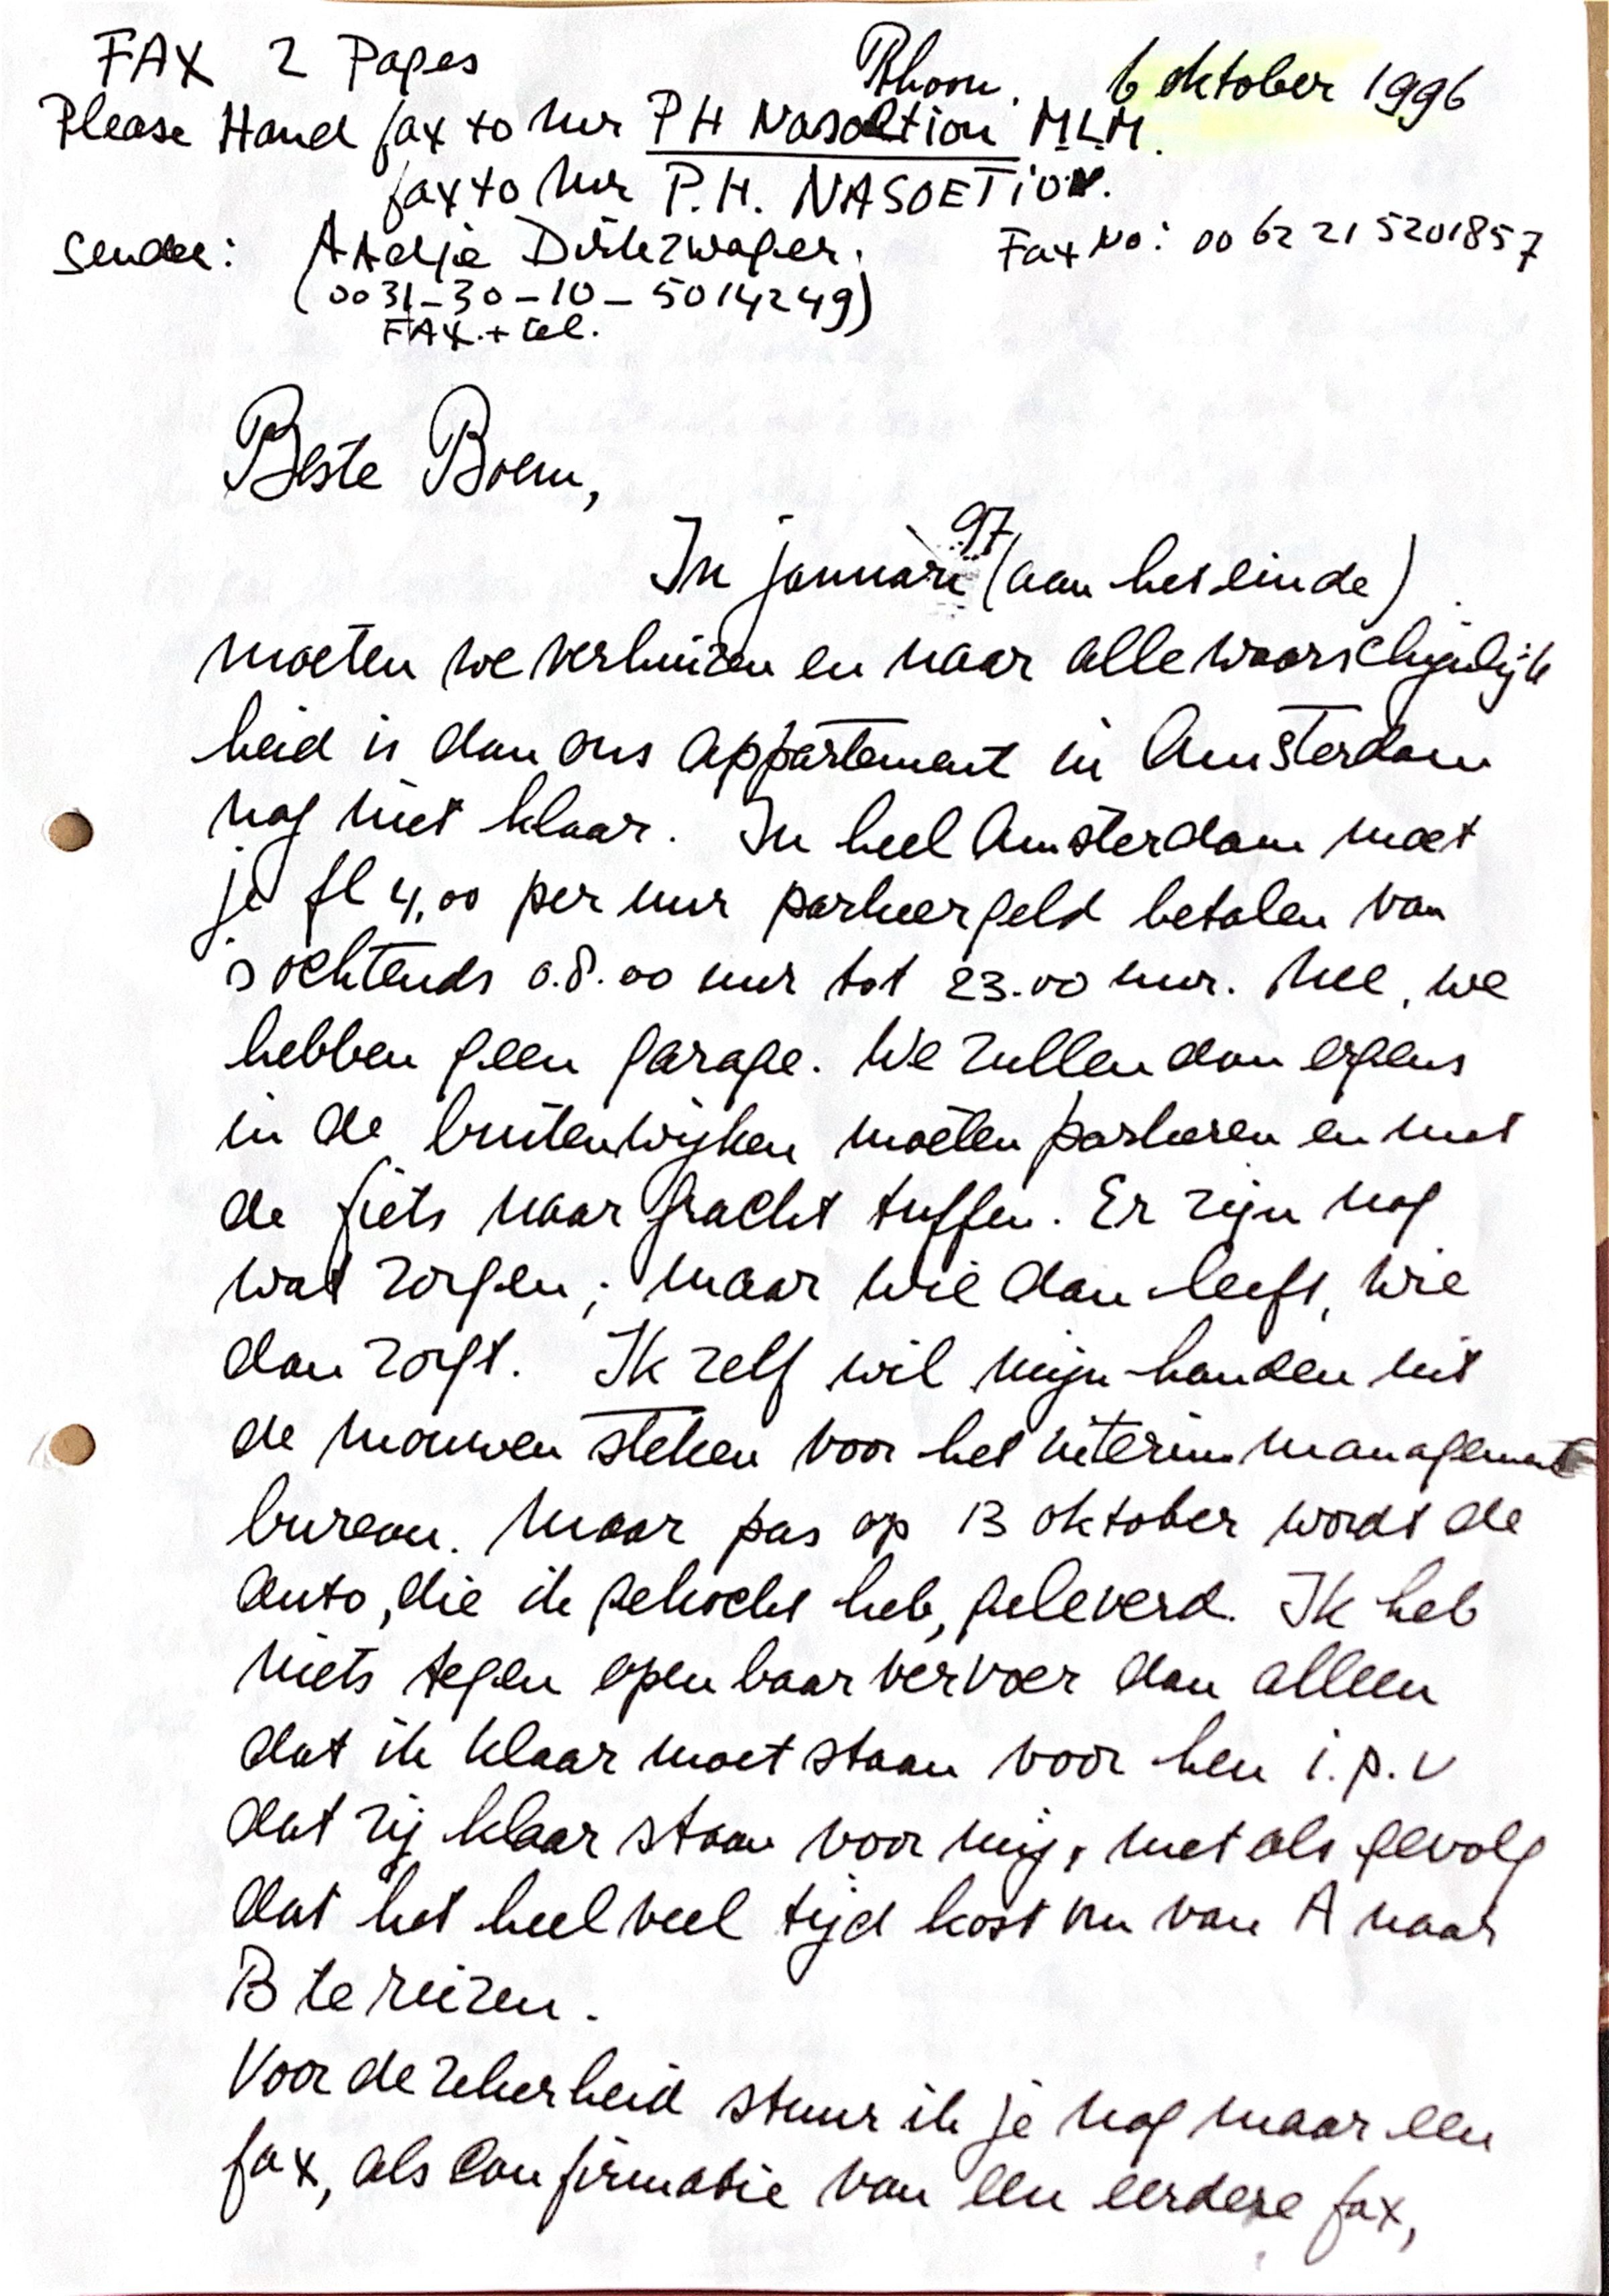 FAX 2 Pages
Rhoon. 6 oktober 1996
Please Hand fax to mr PH Nasoetion MLM.
fax to mr P.H. NASOETION.
Sender: Aadje Dirkzwager.
Fax No: 00 62 21 5201857
(0031-30-10-5014249)
FAX.+tel.
Beste Boem,
In januari 97 (aan het einde)
moeten we verhuizen en naar alle waarschijnlijk
heid is dan ons appartement in Amsterdam
nog niet klaar. In heel Amsterdam moet
je fl 4,00 per uur parkeergeld betalen van
's ochtends 0.8.00 uur tot 23.00 uur. Nee, we
hebben geen garage. We zullen dan ergens
in de buitenwijken moeten parkeren en met
de fiets naar gracht tuffen. Er zijn nog
wat zorgen; maar wie dan leeft, wie
dan zorgt. Ik zelf wil mijn handen uit
de mouwen steken voor het interim management
bureau. Maar pas op 13 oktober wordt de
auto, die ik gekocht heb, geleverd. Ik heb
niets tegen openbaar vervoer dan alleen
dat ik klaar moet staan voor hen i.p.v
dat zij klaar staan voor mij, met als gevolg
dat het heel veel tijd kost om van A naar
B te reizen.
Voor de zekerheid stuur ik je nog maar een
fax, als confirmatie van een eerdere fax,